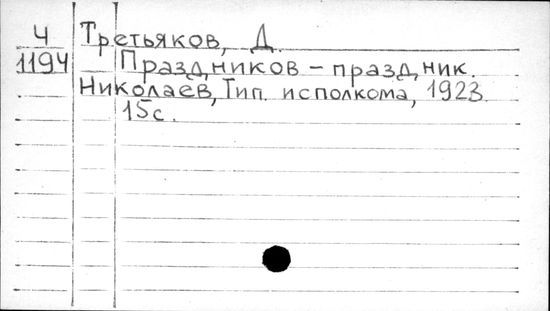 Ч Третьяков, Д.
1194 Праздников – праздник.
Николаев, Тип. исполкома, 1923.
15с.